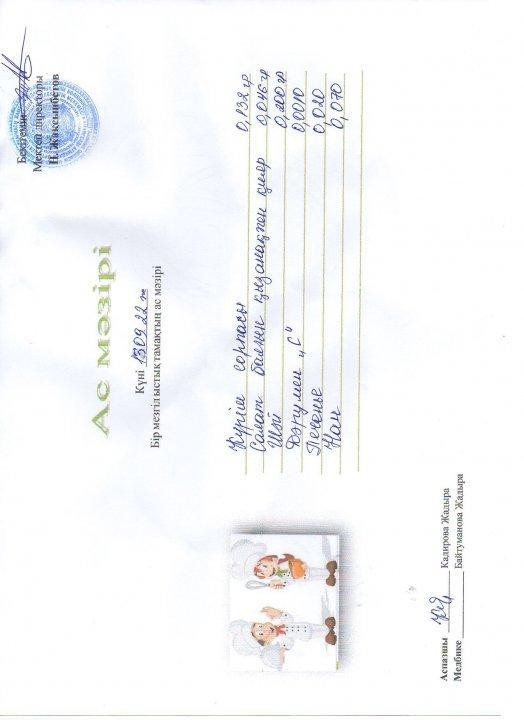 Бекітемін
Мектеп директоры
Н. Жаксынбетов
Ас мәзірі
Күні 13.09.22 ж
Бір мезгіл ыстық тамақтың ас мәзірі
Күріш сорпасы 0,132 гр
Салат балғын қызанақпен қияр 0,046 гр
Шәй 0,200 гр
Дәрумен "С" 0,0010
Печенье 0,020
Нан 0,070
Аспазшы Кадирова Жадыра
Медбике Байтуманова Жадыра